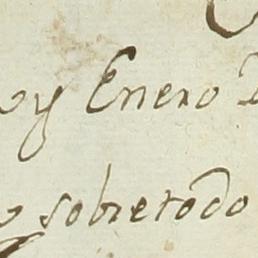 y Enero
sobretodo